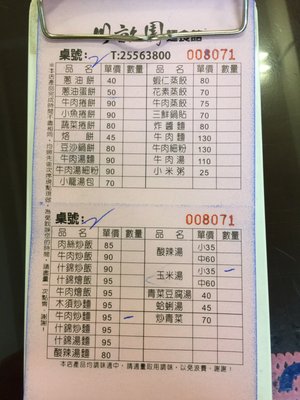 川
園
桌號: 2 T:25563800 008071
品 名 單價 數量 品 名 單價 數量
蔥油餅 40 蝦仁蒸餃 80
蔥油蛋餅 50 花素蒸餃 70
牛肉捲餅 90 牛肉蒸餃 70
小魚捲餅 90 三鮮鍋貼 70
蔬菜捲餅 80 炸醬麵 80
烙 餅 45 牛肉麵 130
豆沙鍋餅 80 牛肉細粉 130
牛肉湯麵 90 牛肉湯 110
牛肉湯細粉 90 小米粥 25
小籠湯包 70
桌號: 2 008071
品 名 單價 數量 品 名 單價 數量
肉絲炒飯 85 酸辣湯 小35
牛肉炒飯 90 中60
什錦炒飯 90 玉米湯 小35
什錦燴飯 95 中60
牛肉燴飯 95 青菜豆腐湯 40
木須炒麵 85 蛤蜊湯 45
牛肉炒麵 95 炒青菜 70
什錦炒麵 95
什錦湯麵 95
酸辣湯麵 80
本店產品均調味適中，請適量取用調味，以免浪費，謝謝！